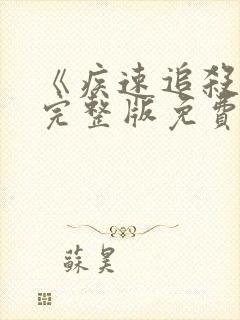 《疾速追殺
完整版免費
蘇昊